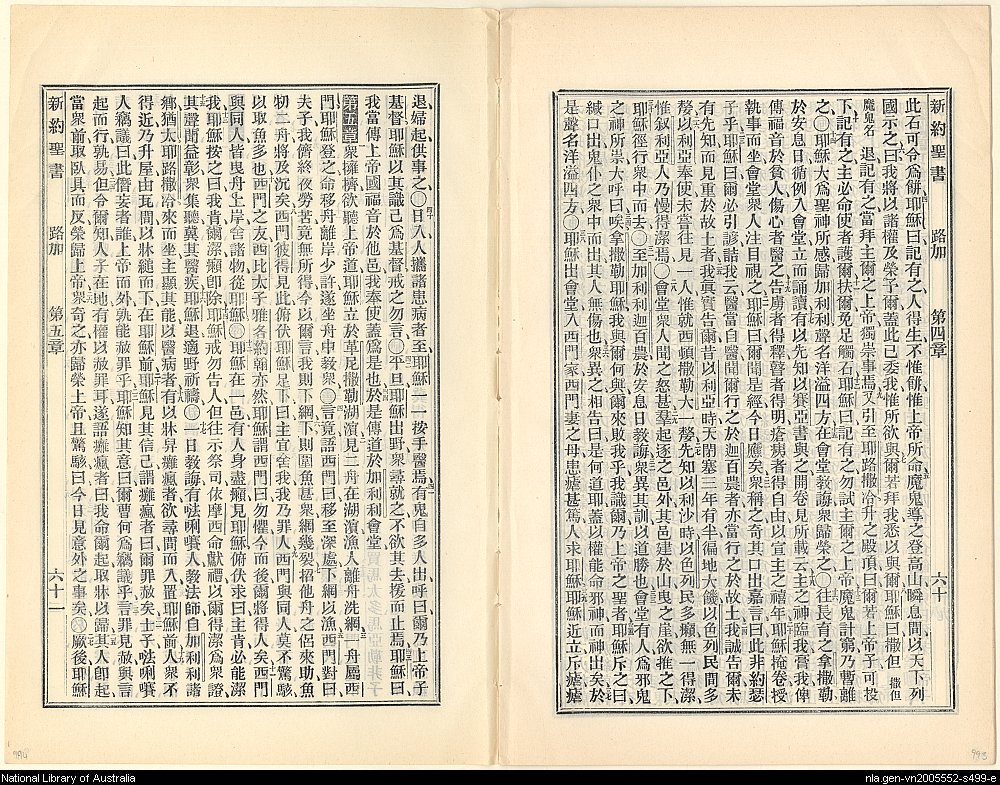 新約聖書 路加 第四章 六十
此石可令爲餅耶穌曰記有之人得生不惟餅惟上帝所命魔鬼導之登高山瞬息間以天下列
國示之曰我將以諸權及榮予爾蓋此已委我惟所欲與爾若拜我悉以與爾耶穌曰撒但 撒但
魔鬼名 退記有之當拜主爾之上帝獨崇事焉又引至耶路撒冷升之殿頂曰爾若上帝子可投
下記有之主必命使者護爾扶爾免足觸石耶穌曰記有之勿試主爾之上帝魔鬼計窮乃暫離
之〇耶穌大爲聖神所感歸加利利聲名洋溢四方在會堂教誨衆歸榮之〇往長育之拿撒勒
於安息日循例入會堂立而誦讀有以先知以賽亞書與之開卷見所載云主之神臨我膏我俾
傳福音於貧人傷心者醫之告虜者得釋瞽者得明瘡痍者得自由以宣主之禧年耶穌掩卷授
執事而坐會堂衆人注目視之耶穌曰爾聞是經今日應矣衆稱之奇其口出嘉言曰此非約瑟
子乎耶穌曰爾必引諺詰我云醫當自醫聞爾行之於迦百農者亦當行之於故土我誠告爾未
有先知而見重於故土者我眞實告爾昔以利亞時天閉塞三年有半徧地大饑以色列民間多
嫠以利亞奉使未嘗往見一人惟就西頓撒勒大一嫠先知以利沙時以色列民多癩無一得潔
惟叙利亞人乃慢得潔焉〇會堂衆人聞之怒甚羣起逐之邑外其邑建於山曳之崖欲推之下
耶穌徑行衆中而去〇至加利利迦百農於安息日教誨衆異其訓以道勝也會堂有人爲邪鬼
之神所祟大呼曰唉拿撒勒耶穌我與爾何與爾來敗我乎我識爾乃上帝之聖者耶穌斥之曰
緘口出鬼仆之衆中而出其人無傷也衆異之相告曰是何道耶蓋以權能命邪神而神出矣於
是聲名洋溢四方〇耶穌出會堂入西門家西門妻之母患瘧甚篤人求耶穌耶穌近立斥瘧瘧
退婦起供事之〇日入人攜諸患病者至耶穌一一按手醫焉有鬼自多人出呼曰爾乃上帝子
基督耶穌以其識己爲基督戒之勿言〇平旦耶穌出野衆尋就之不欲其去援而止焉耶穌曰
我當傳上帝國福音於他邑我奉使蓋爲是也於是傳道於加利利會堂
第五章 衆擁擠欲聽上帝道耶穌立於革尼撒勒湖濱見二舟在湖濱漁人離舟洗網一舟屬西
門耶穌登之命移舟離岸少許遂坐舟中教衆〇言竟語西門曰移至深處下網以漁西門對曰
夫子我儕終夜勞苦竟無所得今以爾言我則下網下則圍魚甚衆網幾裂招他舟之侶來助魚
牣二舟將及沉矣西門彼得見此俯伏耶穌足下曰主宜舍我我乃罪人西門與同人莫不驚駭
以取魚多也西門之友西比太子雅各約翰亦然耶穌謂西門曰勿懼今而後爾將得人矣西門
與同人皆曳舟上岸舍諸物從耶穌〇耶穌在一邑有人身盡癩見耶穌俯伏求曰主肯必能潔
我耶穌按之曰我肯爾潔癩卽除耶穌戒勿告人但往示祭司依摩西命獻禮以爾得潔爲衆證
其聲聞益彰衆集聽冀其醫疾耶穌退適野祈禱〇一日教誨有法唎㘔人教法師自加利利諸
鄉猶太耶路撒冷來而坐主顯其能以醫病者有以牀舁癱瘋者欲尋間而入置耶穌前人衆不
得近乃升屋由瓦間以牀縋而下在耶穌前耶穌見其信己謂癱瘋者曰爾罪赦矣士子法唎㘔
人竊議曰此僭妄者誰上帝而外孰能赦罪乎耶穌知其意曰爾曹何爲竊議乎言罪見赦與言
起而行孰易但令爾知人子在地有權以赦罪耳遂語癱瘋者曰我命爾起取牀以歸其人卽起
當衆前取臥具而反榮歸上帝衆奇之亦歸榮上帝且驚駭曰今日見意外之事矣〇厥後耶穌
新約聖書 路加 第五章 六十一
984
983
National Library of Australia
nla.gen-vn2005552-s499-e